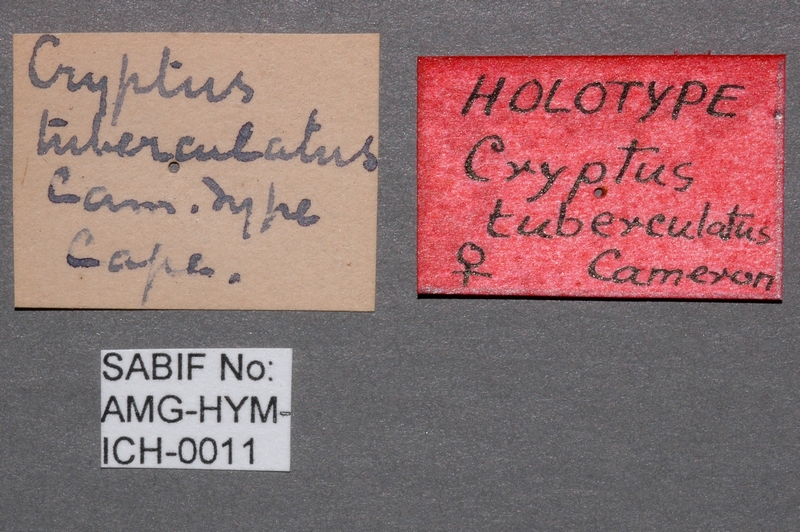 Cryptus
tuberculatus
Cam. Type
Cape.
HOLOTYPE
Cryptus
tuberculatus
♀ Cameron
SABIF No:
AMG-HYM-
ICH-0011